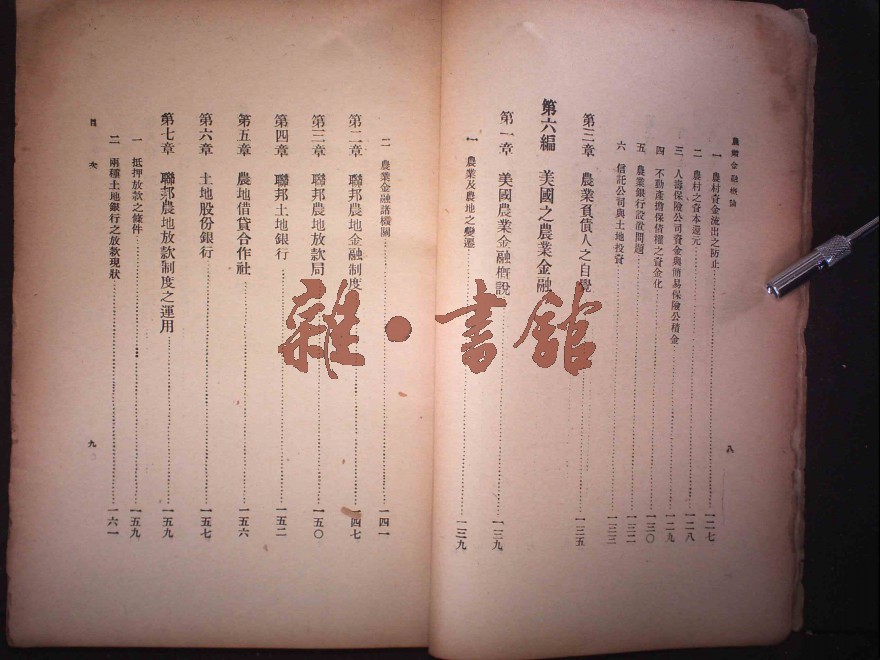 農業金融概論
一 農村資金流出之防止 一二七
二 農村之資本還元 一二八
三 人壽保險公司資金與簡易保險公積金 一二九
四 不動產擔保債權之資金化 一三〇
五 農業銀行設置問題 一三二
六 信託公司與土地投資 一三三
第三章 農業負債人之自覺 一三五
第六編 美國之農業金融
第一章 美國農業金融概說 一三九
一 農業及農地之變遷 一三九
八
二 農業金融諸機關 一四一
第二章 聯邦農地金融制度 一四七
第三章 聯邦農地放款局 一五〇
第四章 聯邦土地銀行 一五二
第五章 農地借貸合作社 一五六
第六章 土地股份銀行 一五七
第七章 聯邦農地放款制度之運用 一五九
一 抵押放款之條件 一五九
二 兩種土地銀行之放款現狀 一六一
目次
九
雜·書館